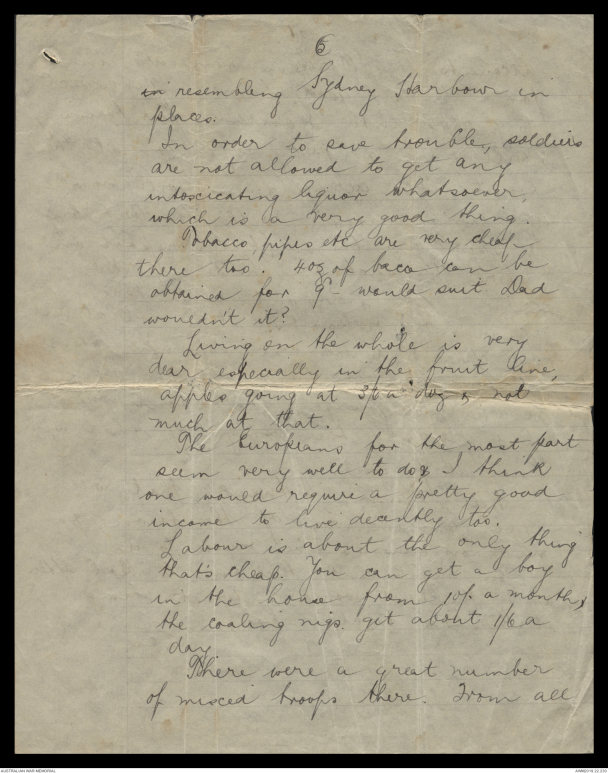 6
in resembling Sydney Harbour in
places.
In order to save trouble, soldiers
are not allowed to get any
intoxicating liquor whatsoever,
which is a very good thing.
Tobacco pipes etc are very cheap
there too. 4oz of bacca can be
obtained for 9d - would suit Dad
wouldn't it?
Living on the whole is very
dear especially in the fruit line,
apples going at 3/6 a doz & not
much at that.
The Europeans for the most part
seem very well to do & I think
one would require a pretty good
income to live decently too.
Labour is about the only thing
that's cheap. You can get a boy
in the house from 10/- a month, &
the coaling nigs. get about 1/6 a
day.
There were a great number
of mixed troops there. From all
AUSTRALIAN WAR MEMORIAL